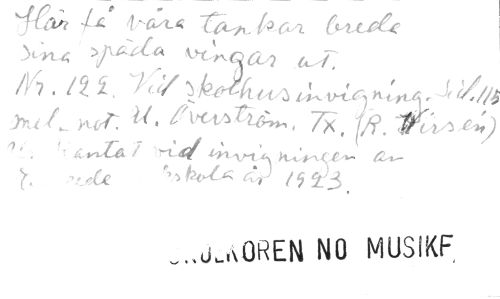 Här få våra tankar breda
sina späda vingar ut.
Nr. 122. Vid skolhusinvigning. Sid. 115
mel. not. U. Överström. Tx. (R. Wirsén)
Kantat vid invigningen av
skola år 1923.
SKOLKÖREN NO MUSIKF